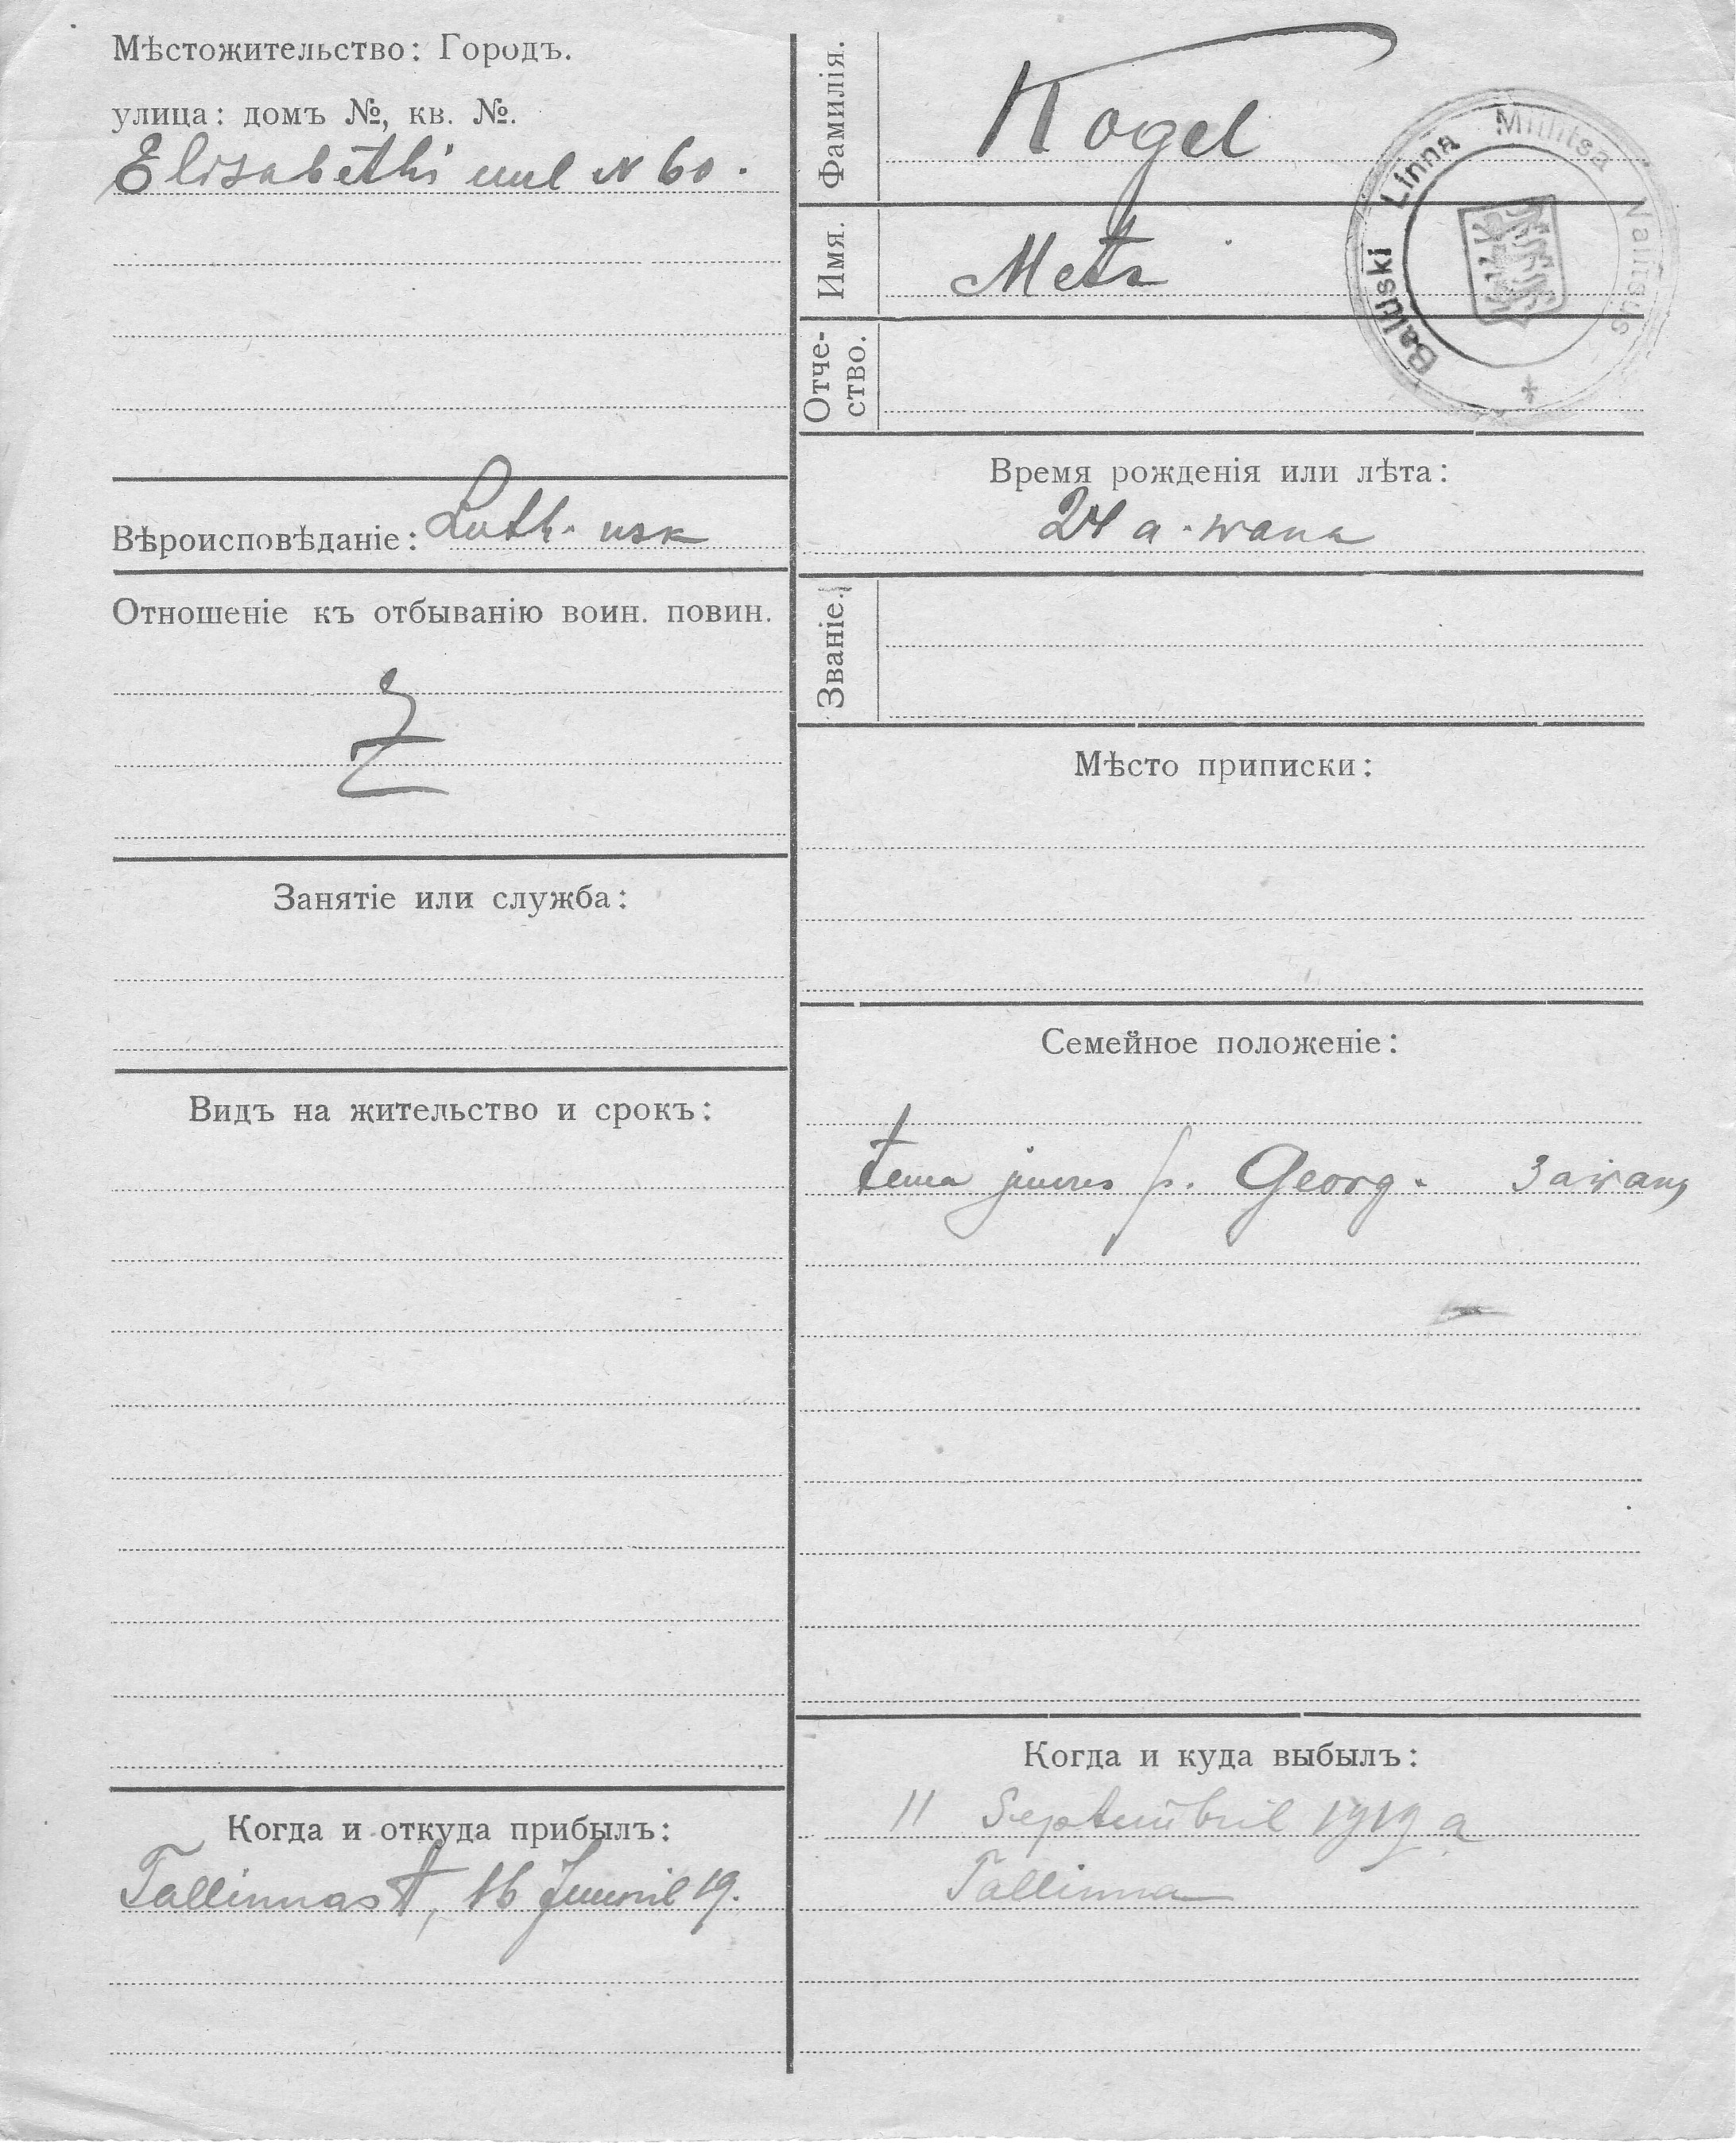 Мѣстожительство: Городъ.
улица: домъ №, кв. №.
Elisabethi uul N 60.
Вѣроисповѣданіе: Luth. usk
Отношеніе къ отбыванію воин. повин.
Занятіе или служба:
Видъ на жительство и срокъ:
Когда и откуда прибылъ:
Tallinnast, 16 Juunil 19.
Фамилія.
Kogel
Имя.
Meta
Отче-
ство.
Baltiski Linna Miilitsa Valitsus
Время рожденія или лѣта:
24 a. wana
Званіе.
Мѣсто приписки:
Семейное положеніе:
tema juures p. Georg. 3 a wana
Когда и куда выбылъ:
11 Septembril 1919 a
Tallinna